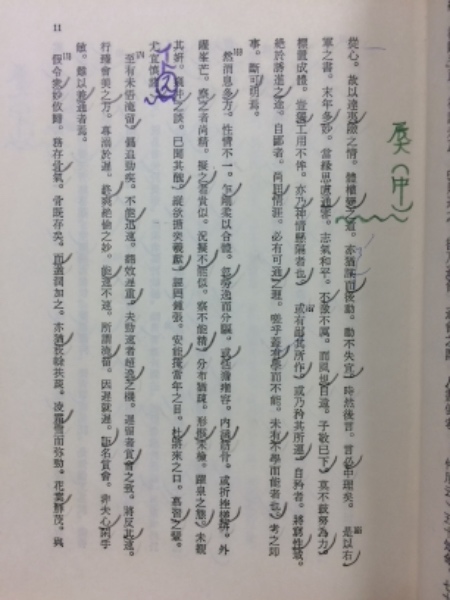 從心。故以達夷險之情。體權變之道。亦猶謀而後動。動不失宜。時然後言。言必中理矣。 是以右
軍之書。末年多妙。當緣思慮通審。志氣和平。不激不厲。而風規自遠。子敬已下。莫不鼓努為力。
標置成體。豈獨工用不侔。亦乃神情懸隔者也。 或有鄙其所作。或乃矜其所運。自矜者。將窮性域。
絕於誘進之途。自鄙者。尚屈情涯。必有可通之理。嗟乎蓋有學而不能。未有不學而能者也。考之即
事。斷可明焉。
然消息多方。性情不一。乍剛柔以合體。忽勞逸而分驅。或恬澹雍容。內涵筋骨。或折挫槎枿。外
曜峯芒。察之者尚精。擬之者貴似。況擬不能似。察不能精。分布猶疎。形骸未檢。躍泉之態。未覩
其妍。窺井之談。已聞其醜。縱欲搪突羲獻。誣罔鍾張。安能掩當年之目。杜將來之口。慕習之輩。
尤宜慎諸。
至有未悟淹留。偏追勁疾。不能迅速。翻效遲重。夫勁速者超逸之機。遲留者賞會之致。將反其速。
行臻會美之方。專溺於遲。終爽絕倫之妙。能速不速。所謂淹留。因遲就遲。詎名賞會。非夫心閑手
敏。難以兼通者焉。
假令衆妙攸歸。務存骨氣。骨既存矣。而遒潤加之。亦猶枝幹扶疎。凌霜雪而彌勁。花葉鮮茂。與
11